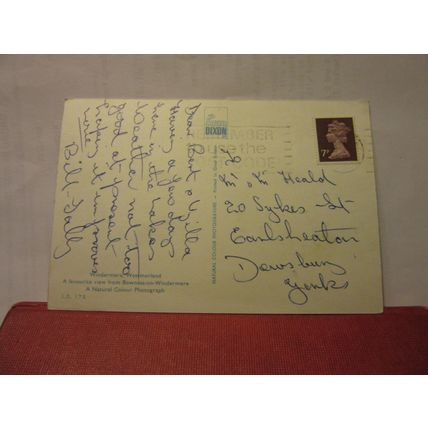 Dear Bert & Zilla
Having a few days
here in the Lakes
Weather not too
good at present
hoping it improves
Love
Bill & Sally
Windermere, Westmorland
A favourite view from Bowness-on-Windermere
A Natural Colour Photograph
L.D. 178
DIXON
NATURAL COLOUR PHOTOGRAPH
REMEMBER
use the
POSTCODE
7P
To
Mr & Mrs Heald
20 Sykes St
Earlsheaton
Dewsbury
Yorks